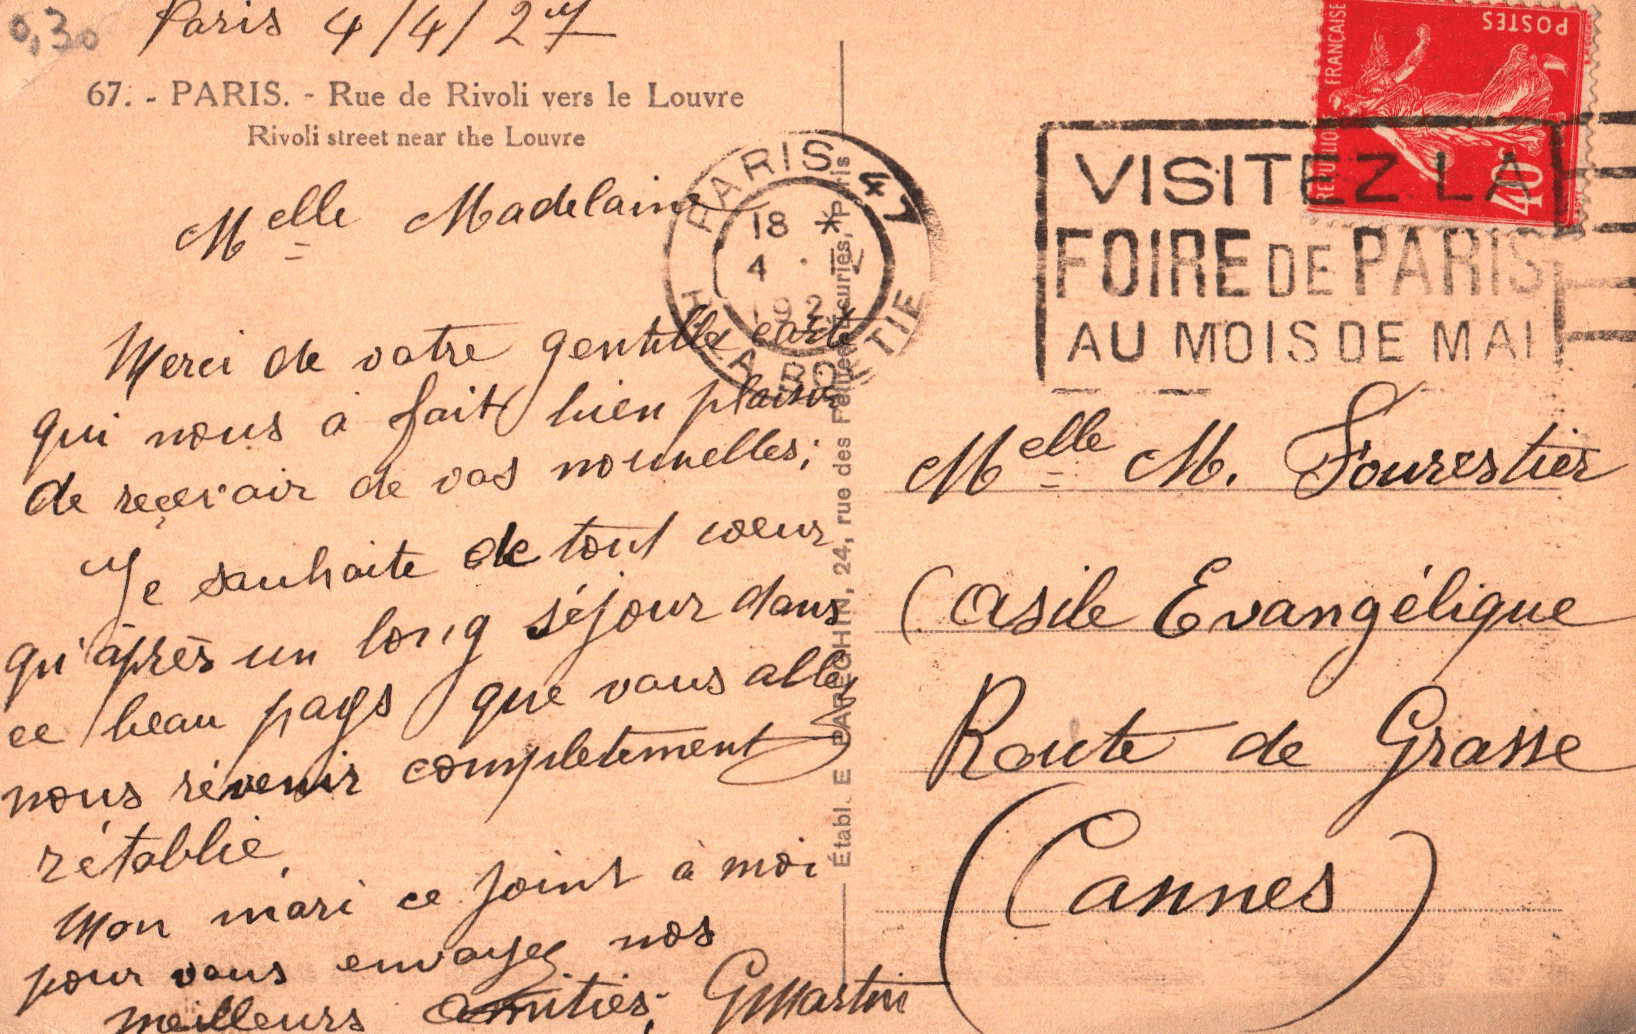 0,30
Paris 4/4/27
67. - PARIS. - Rue de Rivoli vers le Louvre
Rivoli street near the Louvre
Melle Madelaine
Merci de votre gentille carte
qui nous à fait bien plaisir
de reçevoir de vos nouvelles;
Je souhaite de tout coeur
qu'àprès un long séjour dans
ce beau pays que vous allez
nous révenir completement
rétablie.
Mon mari ce joint à moi
pour vous envoyez nos
meilleurs amitiés; GMartin
PARIS 47
18 *
4
192
R. LA BOETIE
Établ. E PAREGHIN, 24, rue des Petites Écuries, Paris
RÉPUBLIQUE FRANÇAISE
POSTES
40
VISITEZ LA
FOIRE DE PARIS
AU MOIS DE MAI
Melle M. Fourestier
Asile Evangélique
Route de Grasse
(Cannes)